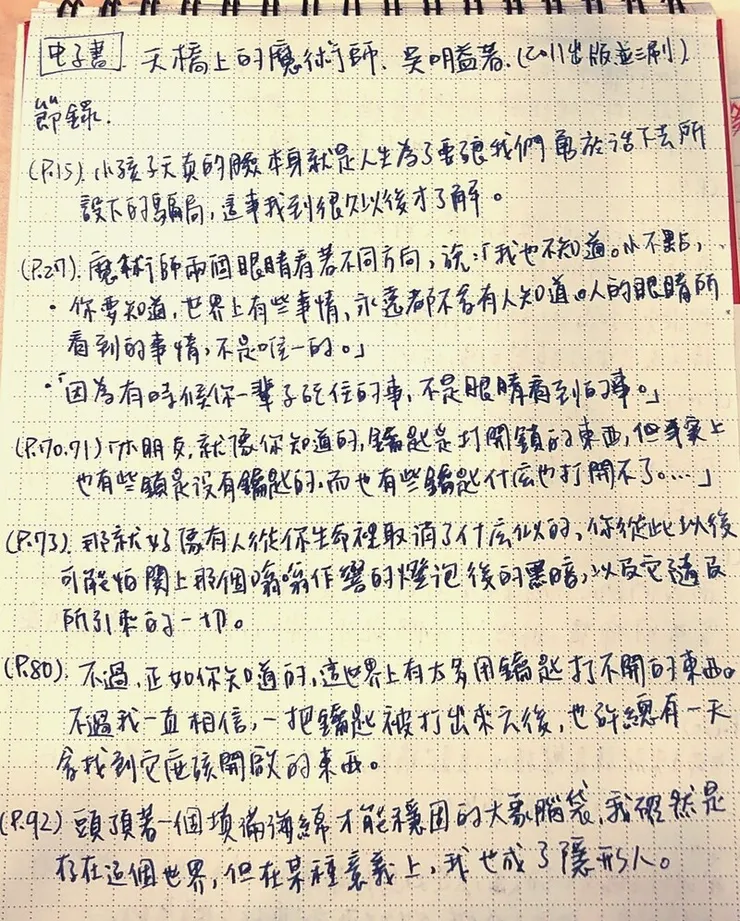 电子書 天橋上的魔術師. 吳明益著. (2011出版並三刷)
節錄.
(P.15). 小孩子天真的臉本身就是人生為了要讓我們勇於活下去所
設下的騙局，這事我到很久以後才了解。
(P.27). 魔術師兩個眼睛看著不同方向，說：「我也不知道。小不點，
・你要知道，世界上有些事情，永遠都不會有人知道。人的眼睛所
看到的事情，不是唯一的。」
・「因為有時候你一輩子記住的事，不是眼睛看到的事。」
(P.70.71)「小朋友，就像你知道的，鑰匙是打開鎖的東西，但事實上
也有些鎖是沒有鑰匙的，而也有些鑰匙什庅也打開不了。…」
(P.73). 那就好像有人從你生命裡取消了什庅似的，你從此以後
可能怕關上那個嗡嗡作響的燈泡後的黑暗，以及它隨及
所引來的一切。
(P.80). 不過，正如你知道的，這世界上有太多用鑰匙打不開的東西。
不過我一直相信，一把鑰匙被打出來之後，也許總有一天
會找到它應該開啟的東西。
(P.92) 頭頂著一個填滿海綿才能穩固的大象腦袋，我確然是
存在這個世界，但在某種意義上，我也成了隱形人。